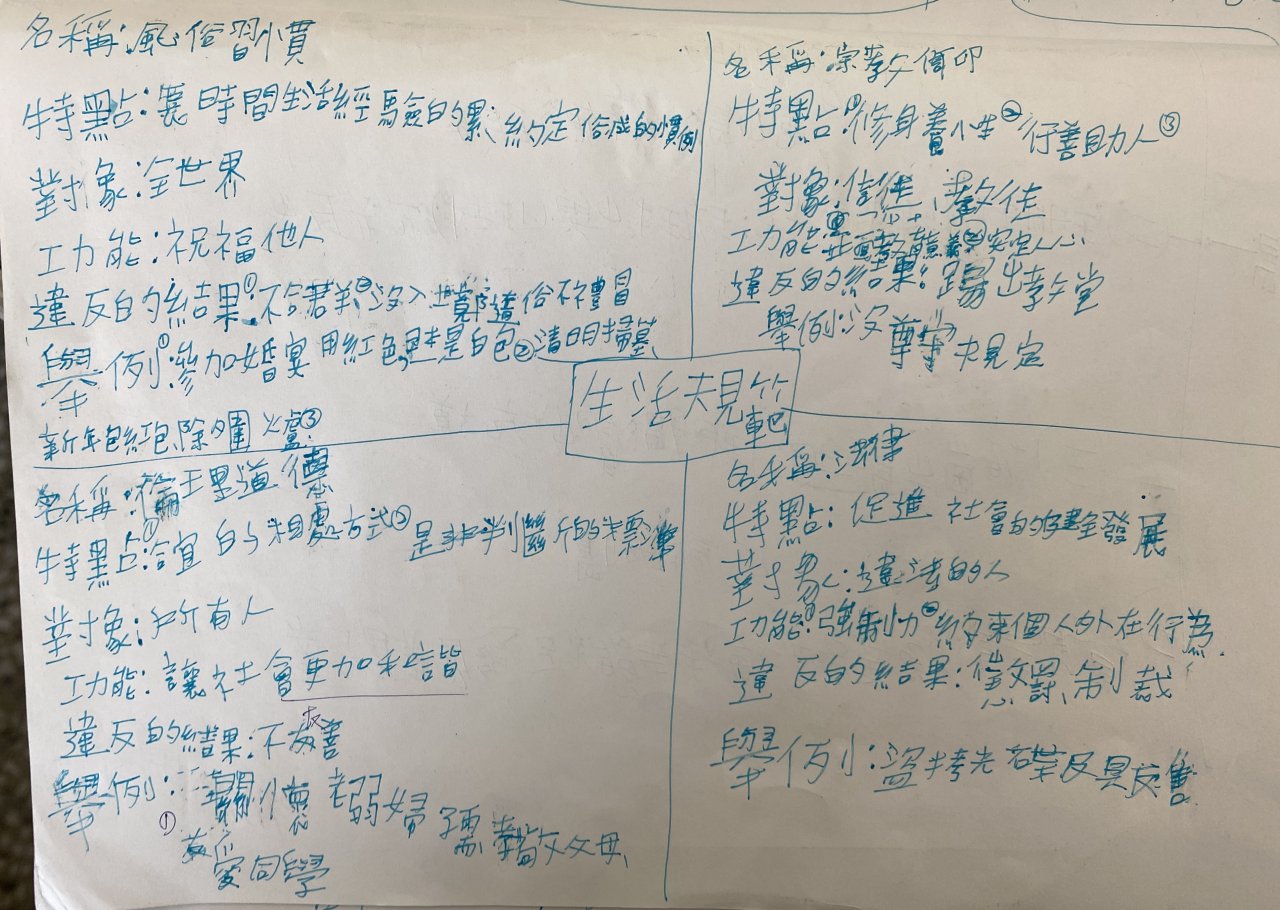 名稱:風俗習慣
特點:長時間生活經驗的累,約定俗成的慣例
對象:全世界
功能:祝福他人
違反的結果:①不合群②沒入境隨俗不禮冒
舉例:①參加婚宴用紅色包,不是白包②清明掃墓
新年包紅包,除夕圍火爐③
名稱:宗教信仰
特點:①修身養心性②行善助人③
對象:信徒、教徒
功能 安定人心
違反的結果:踢出教堂
舉例:沒尊守規定
生活規範
名稱:倫理道德
特點:①合宜的相處方式②是非判斷的標準
對象:所有人
功能:讓社會更加和諧
違反的結果:不友善
舉例: 關懷老弱婦孺,孝敬父母、
① 友愛同學
名稱:法律
特點:促進社會的健全發展
對象:違法的人
功能:①強制力②約束個人外在行為
違反的結果:懲罰、制裁
舉例:盜拷光碟及具販售